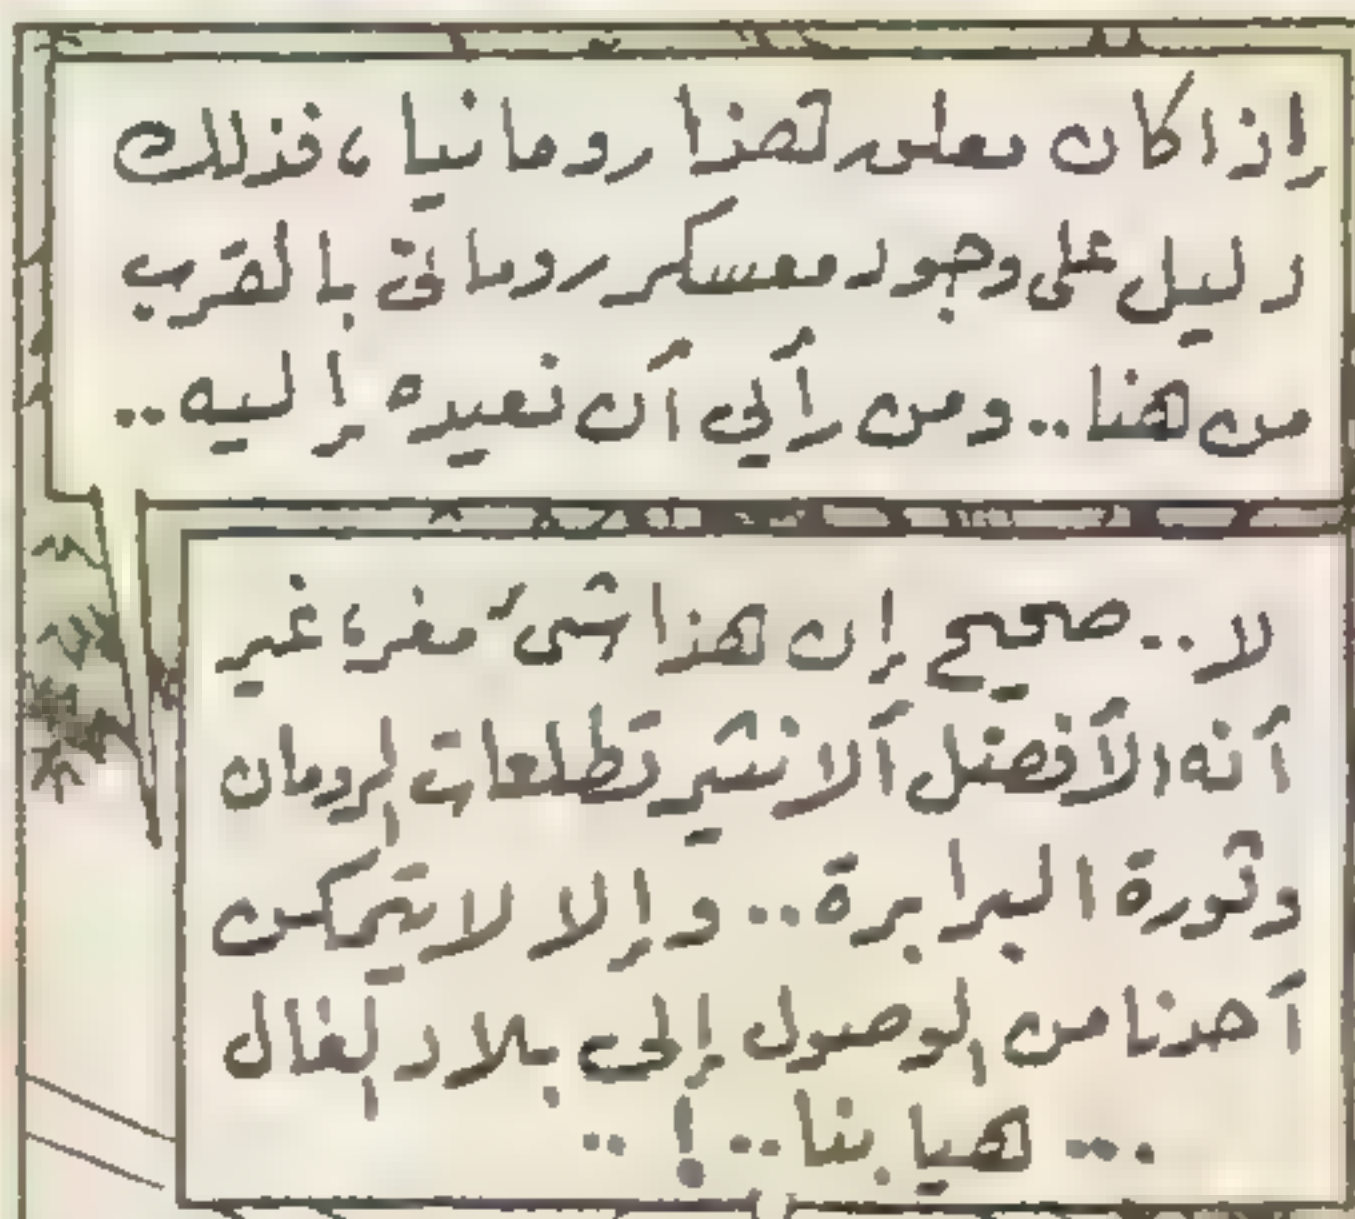 إذا كان معلمه هذا رومانيا، فذلك
دليل على وجود معسكر رومانى بالقرب
من هنا.. ومن رأيي أن نعيده إليه..
لا.. صحيح إن هذا شئ مغر، غير
أنه الأفضل ألا نثير تطلعات الرومان
وثورة البرابرة.. وإلا لا يتمكن
أحدنا من الوصول إلى بلاد الغال
... هيا بنا..! ..